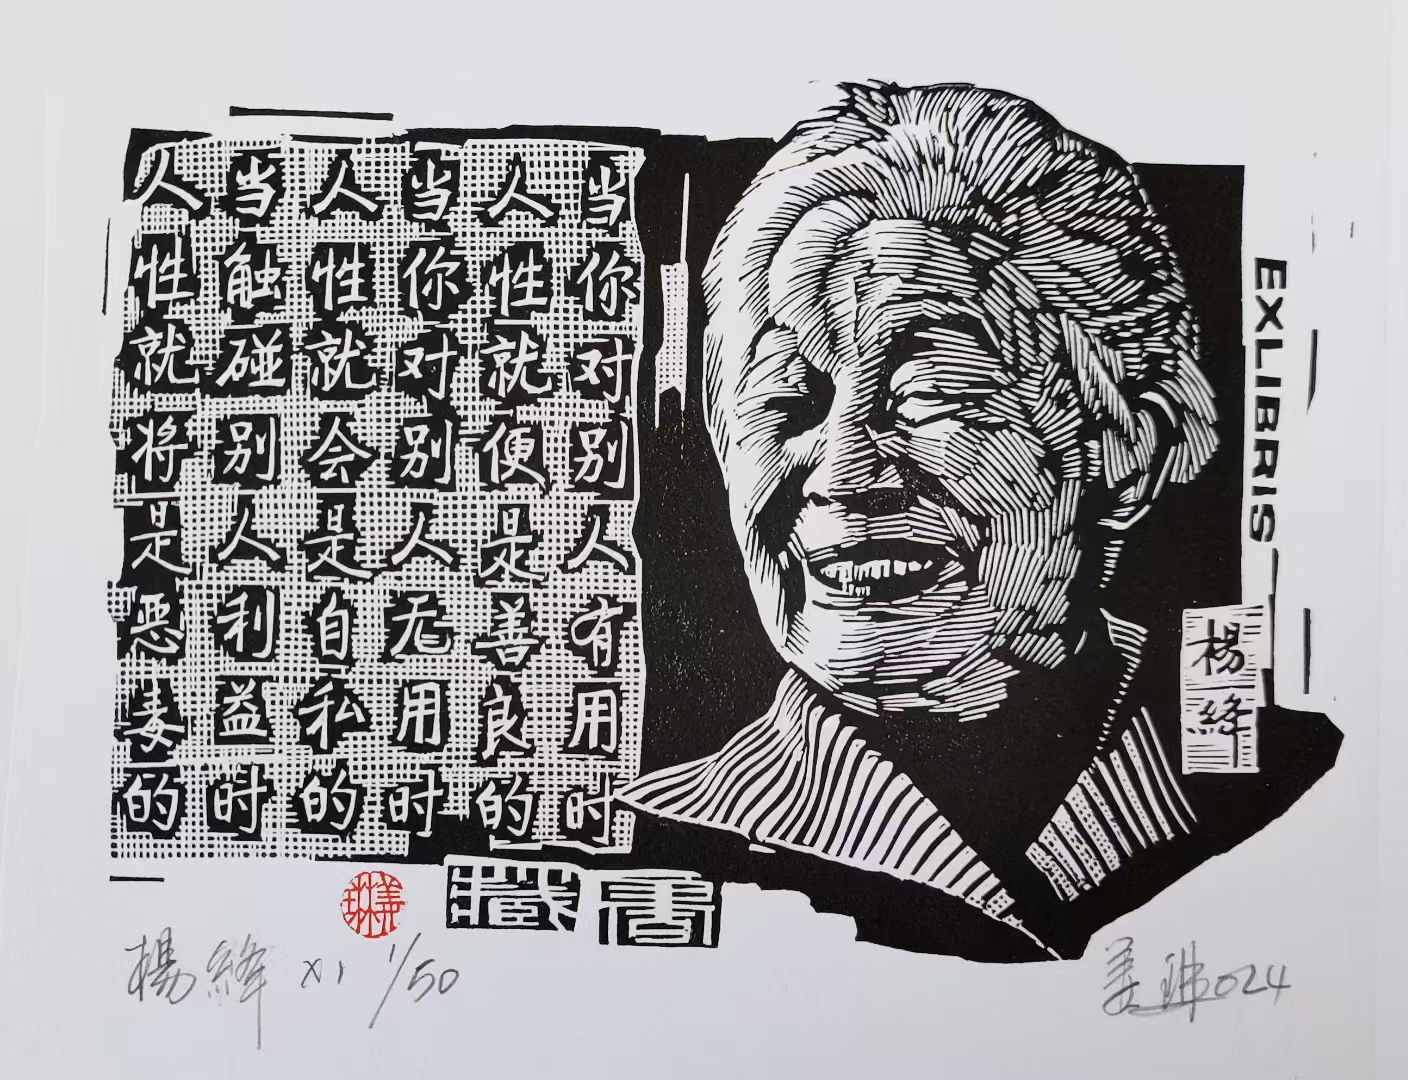 当你对别人有用时
人性就便是善良的
当你对别人无用时
人性就会是自私的
当触碰别人利益时
人性就将是恶毒的
EXLIBRIS
楊絳
藏書
姜琳
楊絳 X1 1/50
姜琳 2024